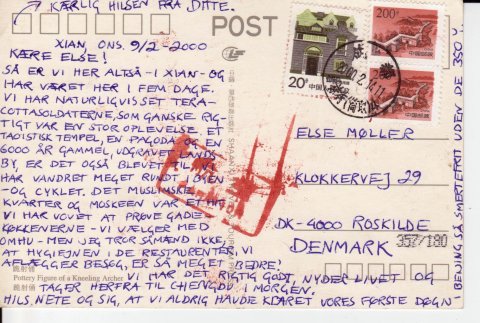 KÆRLIG HILSEN FRA DITTE.
POST
XIAN, ONS. 9/2-2000
KÆRE ELSE!
SÅ ER VI HER ALTSÅ - I XIAN - OG
HAR VÆRET HER I FEM DAGE.
VI HAR NATURLIGVIS SET TERA-
COTTASOLDATERNE, SOM GANSKE RIG-
TIGT VAR EN STOR OPLEVELSE. ET
TAOISTISK TEMPEL, EN PAGODA OG EN
6000 ÅR GAMMEL UDGRAVET LANDS-
BY, ER DET OGSÅ BLEVET TIL. VI
HAR VANDRET MEGET RUNDT I BYEN
- OG CYKLET. DET MUSLIMSKE
KVARTER OG MOSKEEN VAR ET HIT
VI HAR VOVET AT PRØVE GADE-
KØKKENERNE - VI VÆLGER MED
OMHU - MEN JEG TROR SÅMÆND IKKE,
AT HYGIEJNEN I DE RESTAURENTER, VI
AFLÆGGER BESØG, ER SÅ MEGET BEDRE!
VI HAR DET RIGTIG GODT, NYDER LIVET OG
TAGER HERFRA TIL CHENGDU I MORGEN.
HILS. NETE OG SIG, AT VI ALDRIG HAVDE KLARET VORES FØRSTE DØGN
I BEIJING SÅ SMERTEFRIT UDEN DE 350 Y.
跪射俑
Pottery Figure of a Kneeling Archer
20分
中国邮政
200
中国邮政
中国邮政
ELSE MØLLER
KLOKKERVEJ 29
DK-4000 ROSKILDE
DENMARK
357/180